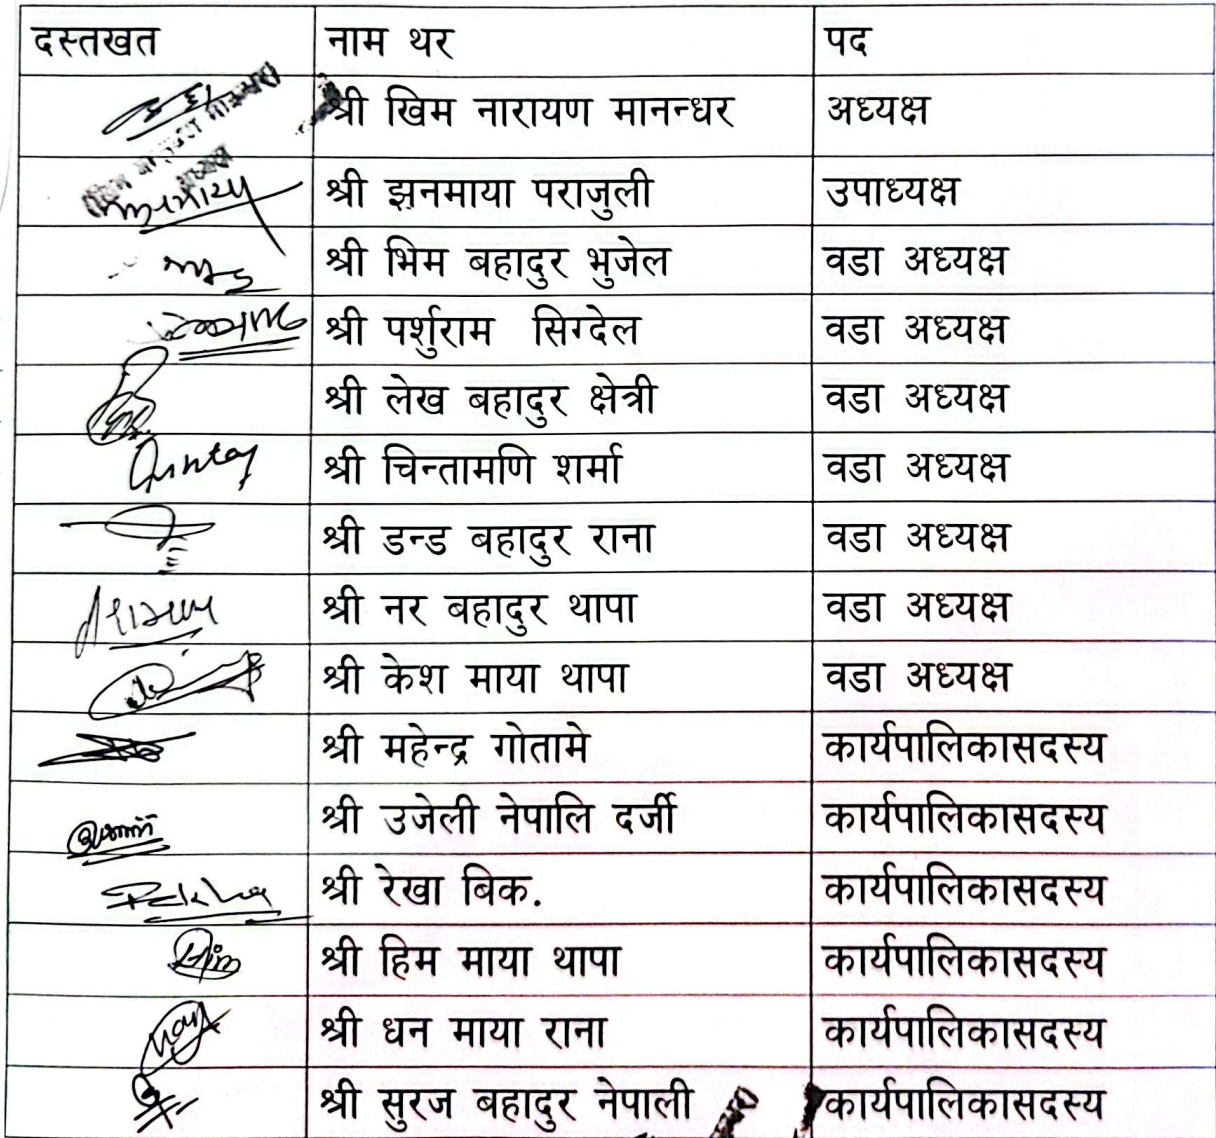 दस्तखत नाम थर पद
श्री खिम नारायण मानन्धर अध्यक्ष
श्री झनमाया पराजुली उपाध्यक्ष
श्री भिम बहादुर भुजेल वडा अध्यक्ष
श्री पर्शुराम सिग्देल वडा अध्यक्ष
श्री लेख बहादुर क्षेत्री वडा अध्यक्ष
श्री चिन्तामणि शर्मा वडा अध्यक्ष
श्री डन्ड बहादुर राना वडा अध्यक्ष
श्री नर बहादुर थापा वडा अध्यक्ष
श्री केश माया थापा वडा अध्यक्ष
श्री महेन्द्र गोतामे कार्यपालिकासदस्य
श्री उजेली नेपालि दर्जी कार्यपालिकासदस्य
Rekha श्री रेखा बिक. कार्यपालिकासदस्य
श्री हिम माया थापा कार्यपालिकासदस्य
श्री धन माया राना कार्यपालिकासदस्य
श्री सुरज बहादुर नेपाली कार्यपालिकासदस्य